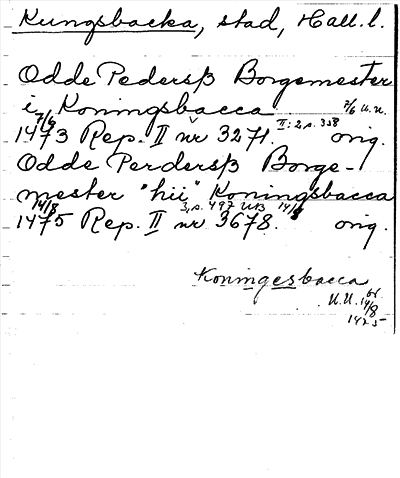 Kungsbacka, stad, Hall. l.
Odde Pedersß Borgemester
i Koningsbacca 7/6 U.U.
7/6 II:2 s. 358
1473 Rep. II nr 3271. orig.
Odde Perdersß Borge-
mester "hii" Koningsbacca
14/8 3, s. 497 UB 14/8
1475 Rep. II nr 3678. orig.
Koningesbacca
U.U. 14/8
1475